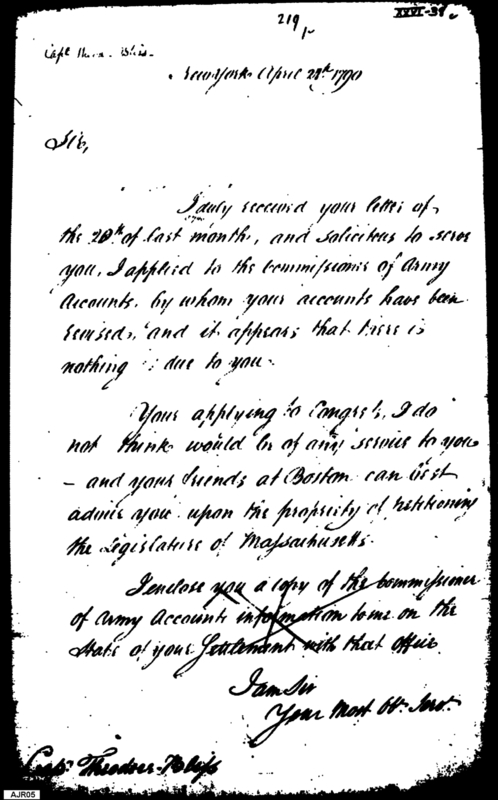 219
XXVI-39
Capt Theo. Bliss
New York April 24th 1790
Sir,
I duly received your letter of
the 20th of last month, and solicitous to serve
you, I applied to the Commissioner of Army
Accounts, by whom your accounts have been
revised, and it appears that there is
nothing due to you.
Your applying to Congress, I do
not think would be of any service to you
- and your friends at Boston can best
advise you upon the propriety of petitioning
the Legislature of Massachusetts.
I enclose you a copy of the Commissioner
of Army Accounts information to me on the
State of your Settlement with that Office
I am Sir
Your Most Obt. Servt.
Capt. Theodore Bliss
AJR05